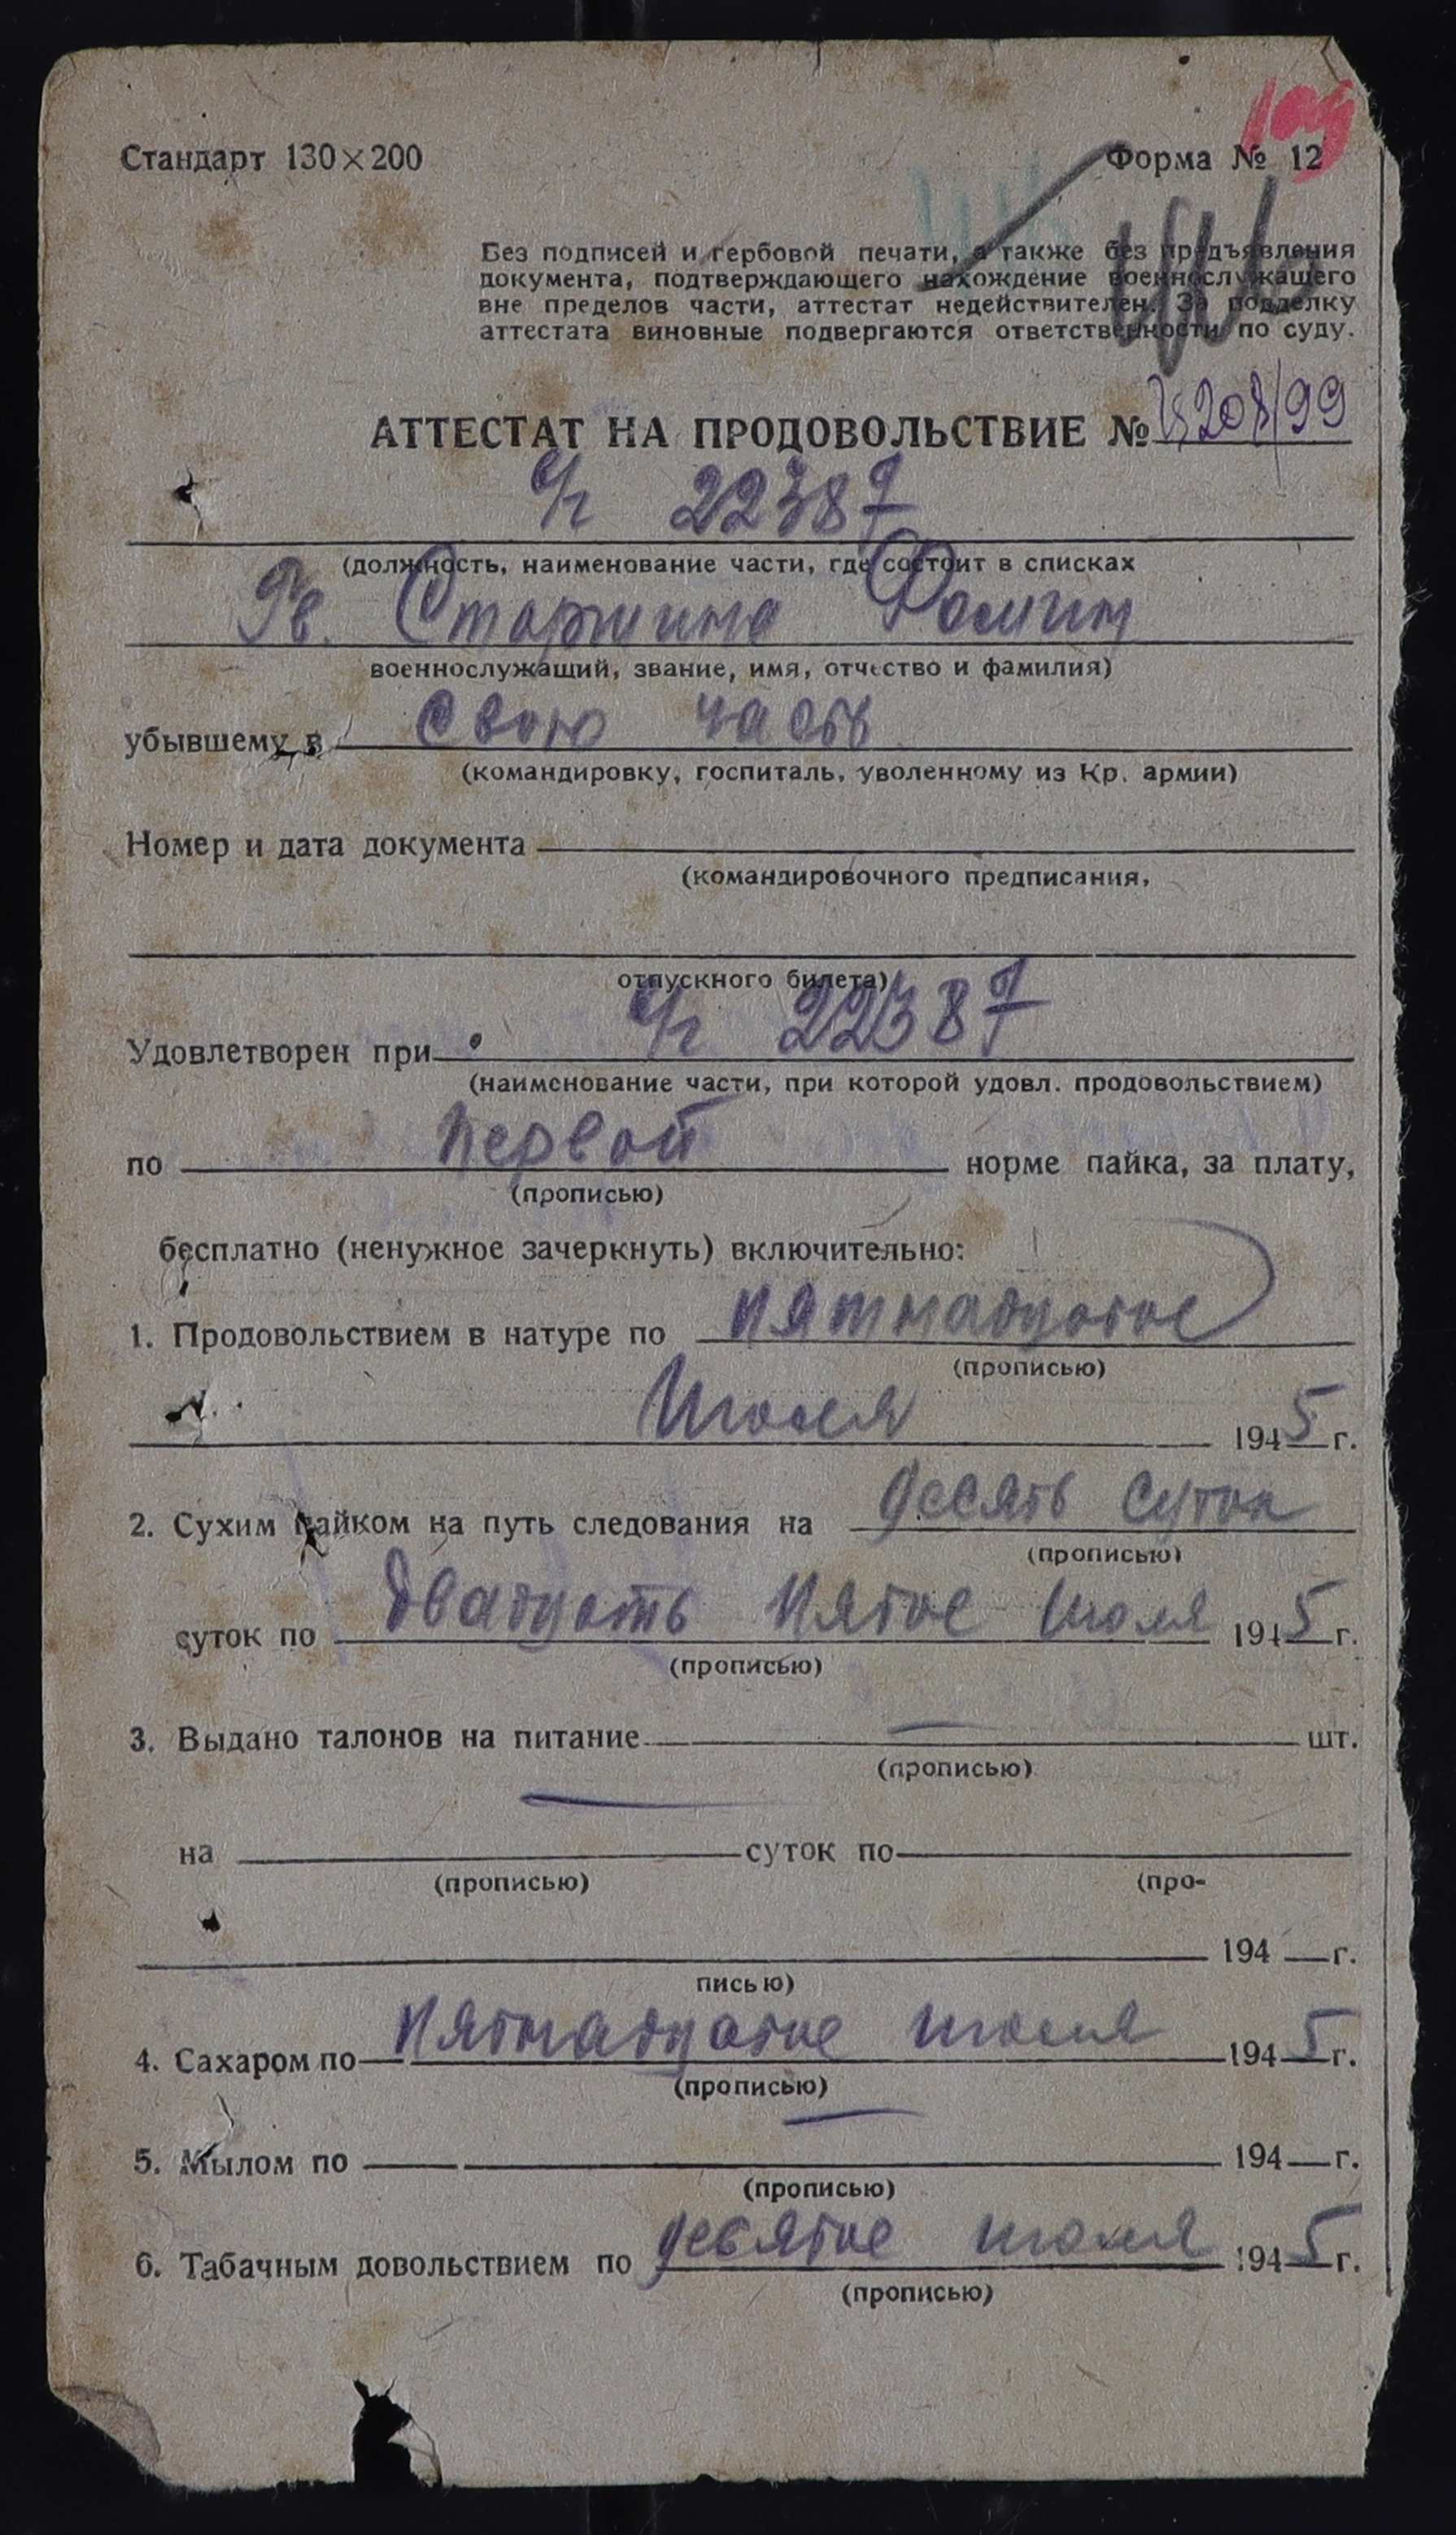 109
Стандарт 130×200
Форма № 12
Без подписей и гербовой печати, а также без предъявления
документа, подтверждающего нахождение военнослужащего
вне пределов части, аттестат недействителен. За подделку
аттестата виновные подвергаются ответственности по суду.
АТТЕСТАТ НА ПРОДОВОЛЬСТВИЕ № 208/99
ч/п 22387
(должность, наименование части, где состоит в списках
Гв. Старшина Фомин
военнослужащий, звание, имя, отчество и фамилия)
убывшему в свою часть
(командировку, госпиталь, уволенному из Кр. армии)
Номер и дата документа
(командировочного предписания,
отпускного билета)
Удовлетворен при ч/п 22387
(наименование части, при которой удовл. продовольствием)
по первой норме пайка, за плату,
(прописью)
бесплатно (ненужное зачеркнуть) включительно:
1. Продовольствием в натуре по пятнадцатое
(прописью)
Июля 1945 г.
2. Сухим пайком на путь следования на десять суток
(прописью)
суток по двадцать пятое июля 1945 г.
(прописью)
3. Выдано талонов на питание — шт.
(прописью)
на — суток по
(прописью) (про-
194 г.
писью)
4. Сахаром по пятнадцатое июля 1945 г.
(прописью)
5. Мылом по — 194 г.
(прописью)
6. Табачным довольствием по девятое июля 1945 г.
(прописью)